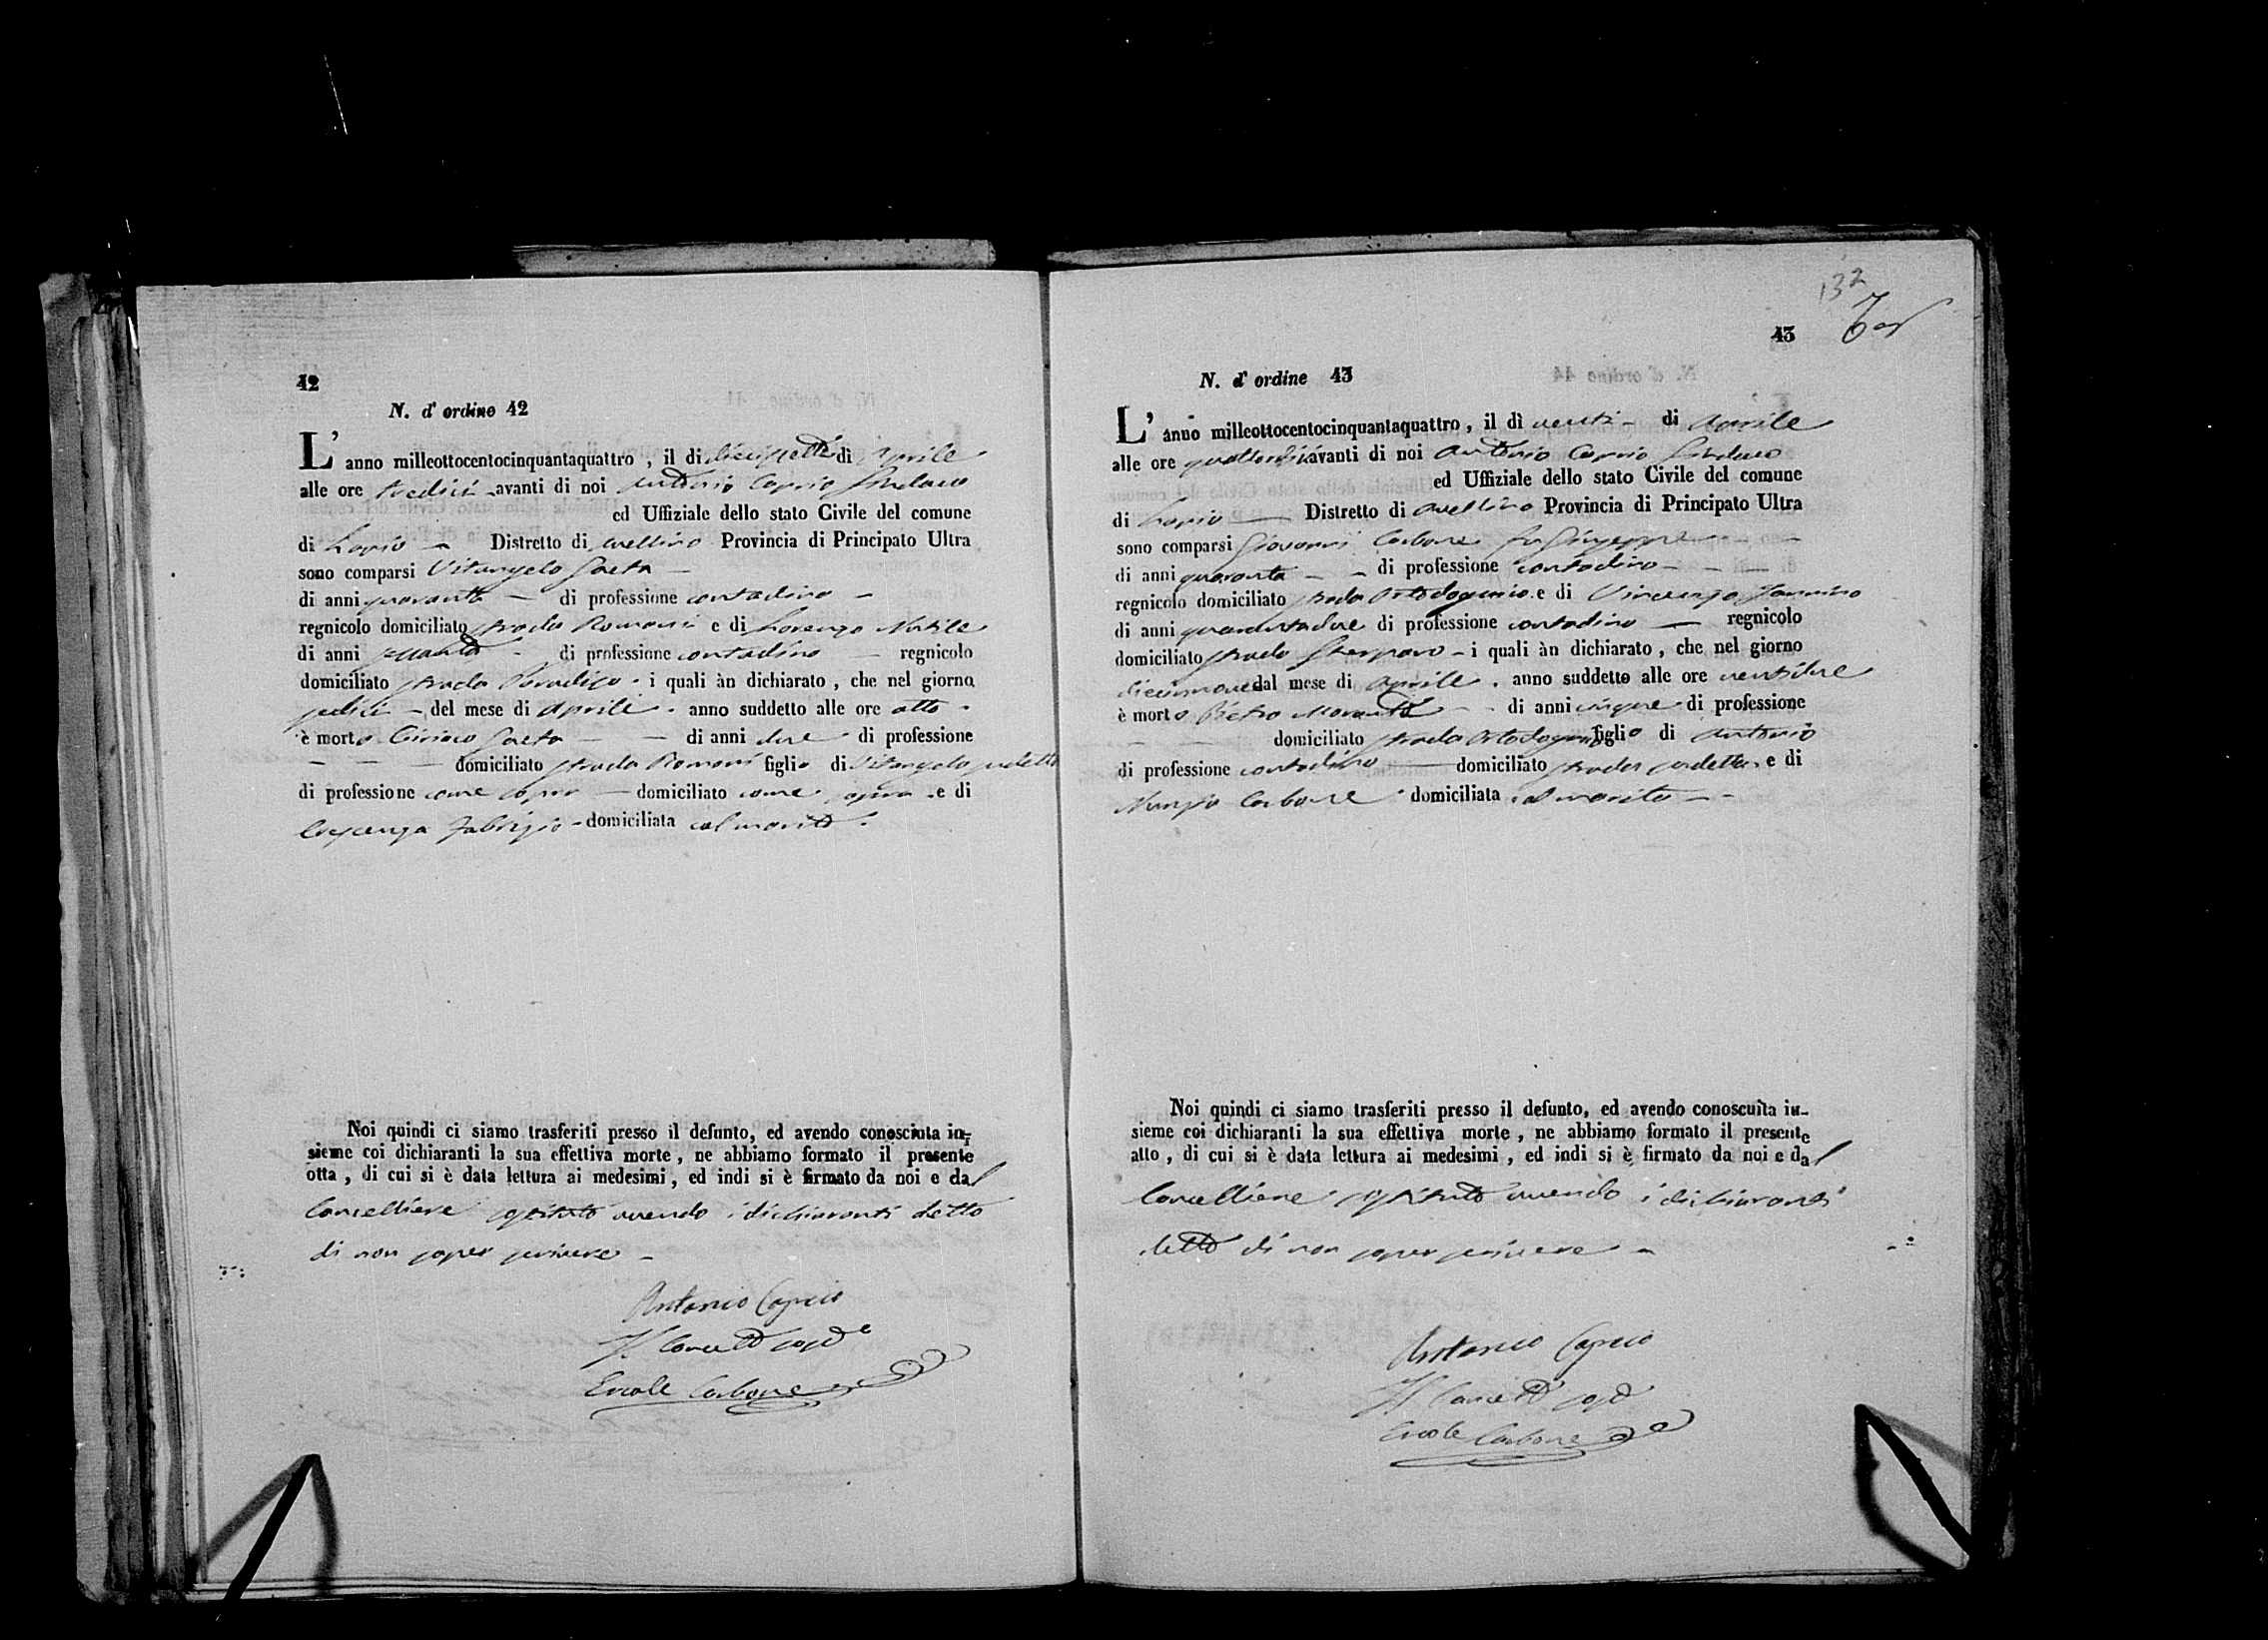 42
N. d' ordine 42
L' anno milleottocentocinquantaquattro , il dì diecisette di Aprile
alle ore tredici avanti di noi Antonio Caprio Sindaco
ed Uffiziale dello stato Civile del comune
di Lapio — Distretto di Avellino Provincia di Principato Ultra
sono comparsi Vitangelo Gaeta —
di anni quaranta — di professione contadino —
regnicolo domiciliato strada Romani e di Lorenzo Natile
di anni - di professione contadino — regnicolo
domiciliato strada Paradiso - i quali àn dichiarato , che nel giorno
sedici — del mese di Aprile - anno suddetto alle ore otto -
è morto Ciriaco Gaeta — — di anni due di professione
— — — domiciliato strada Romani figlio di Vitangelo sudetto
di professione come sopra — domiciliato come sopra - e di
Crescenza Fabrizio - domiciliata col marito .
Noi quindi ci siamo trasferiti presso il defunto, ed avendo conosciuta in-
sieme coi dichiaranti la sua effettiva morte , ne abbiamo formato il presente
otta , di cui si è data lettura ai medesimi , ed indi si è firmato da noi e dal
Cancelliere sostituto avendo i dichiaranti detto
di non saper scrivere —
Antonio Caprio
Il Cancell sost
Ercole Carbone
132
43
N. d' ordine 43
L' anno milleottocentocinquantaquattro , il dì venti - di Aprile
alle ore quattordici avanti di noi Antonio Caprio Sindaco
ed Uffiziale dello stato Civile del comune
di Lapio — Distretto di Avellino Provincia di Principato Ultra
sono comparsi Giovanni Carbone fu Giuseppe — —
di anni quaranta — — di professione contadino — — —
regnicolo domiciliato strada e di Vincenzo Iannino
di anni quarantadue di professione contadino — regnicolo
domiciliato strada - i quali àn dichiarato , che nel giorno
diecinnove dal mese di Aprile . anno suddetto alle ore ventidue
è morto Pietro Morante — - di anni cinque di professione
— — domiciliato strada figlio di Antonio
di professione contadino — domiciliato strada sudetta . e di
Nunzia Carbone - domiciliata col marito — -
Noi quindi ci siamo trasferiti presso il defunto, ed avendo conosciuta in-
sieme coi dichiaranti la sua effettiva morte , ne abbiamo formato il presente
atto , di cui si è data lettura ai medesimi , ed indi si è firmato da noi e dal
Cancelliere sostituto avendo i dichiaranti
detto di non saper scrivere —
Antonio Caprio
Il Cancell sost
Ercole Carbone